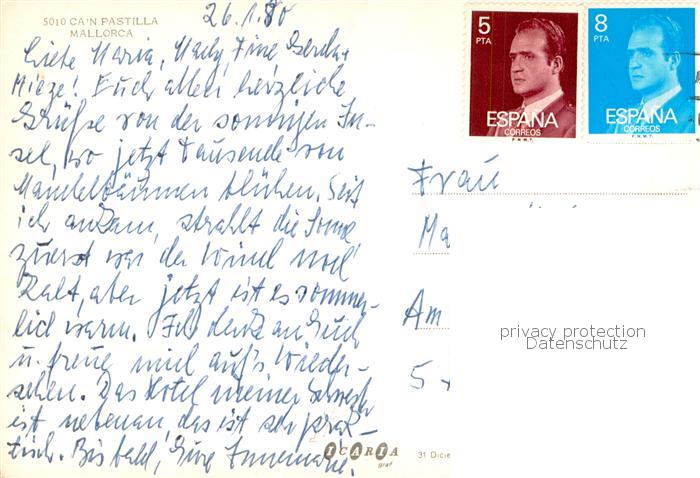 5010 CA'N PASTILLA
MALLORCA
26.1.80
Liebe Maria, Mady, Fine Gerda,
Mieze! Euch allen herzliche
Grüße von der sonnigen In-
sel, wo jetzt Tausende von
Mandelbäumen blühen. Seit
ich ankam, strahlt die Sonne,
zuerst war der Wind noch
kalt, aber jetzt ist es sommer-
lich warm. Ich denke an Euch
u. freue mich auf's Wieder-
sehen. Das Hotel meiner Schwester
ist nebenan, das ist sehr prak-
tisch. Bis bald, Eure Annemarie.
ICARIA
graf
31 Dicie
5
PTA
ESPAÑA
CORREOS
F.N.M.T.
8
PTA
ESPAÑA
CORREOS
F.N.M.T.
Frau
Ma
Am
5
privacy protection
Datenschutz